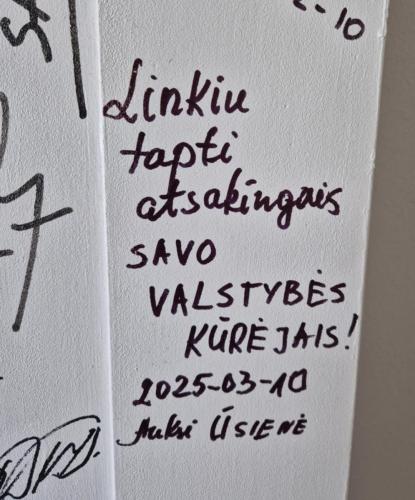 Linkiu
tapti
atsakingais
SAVO
VALSTYBĖS
KŪRĖJAIS!
2025-03-10
Auksi ŪSIENĖ